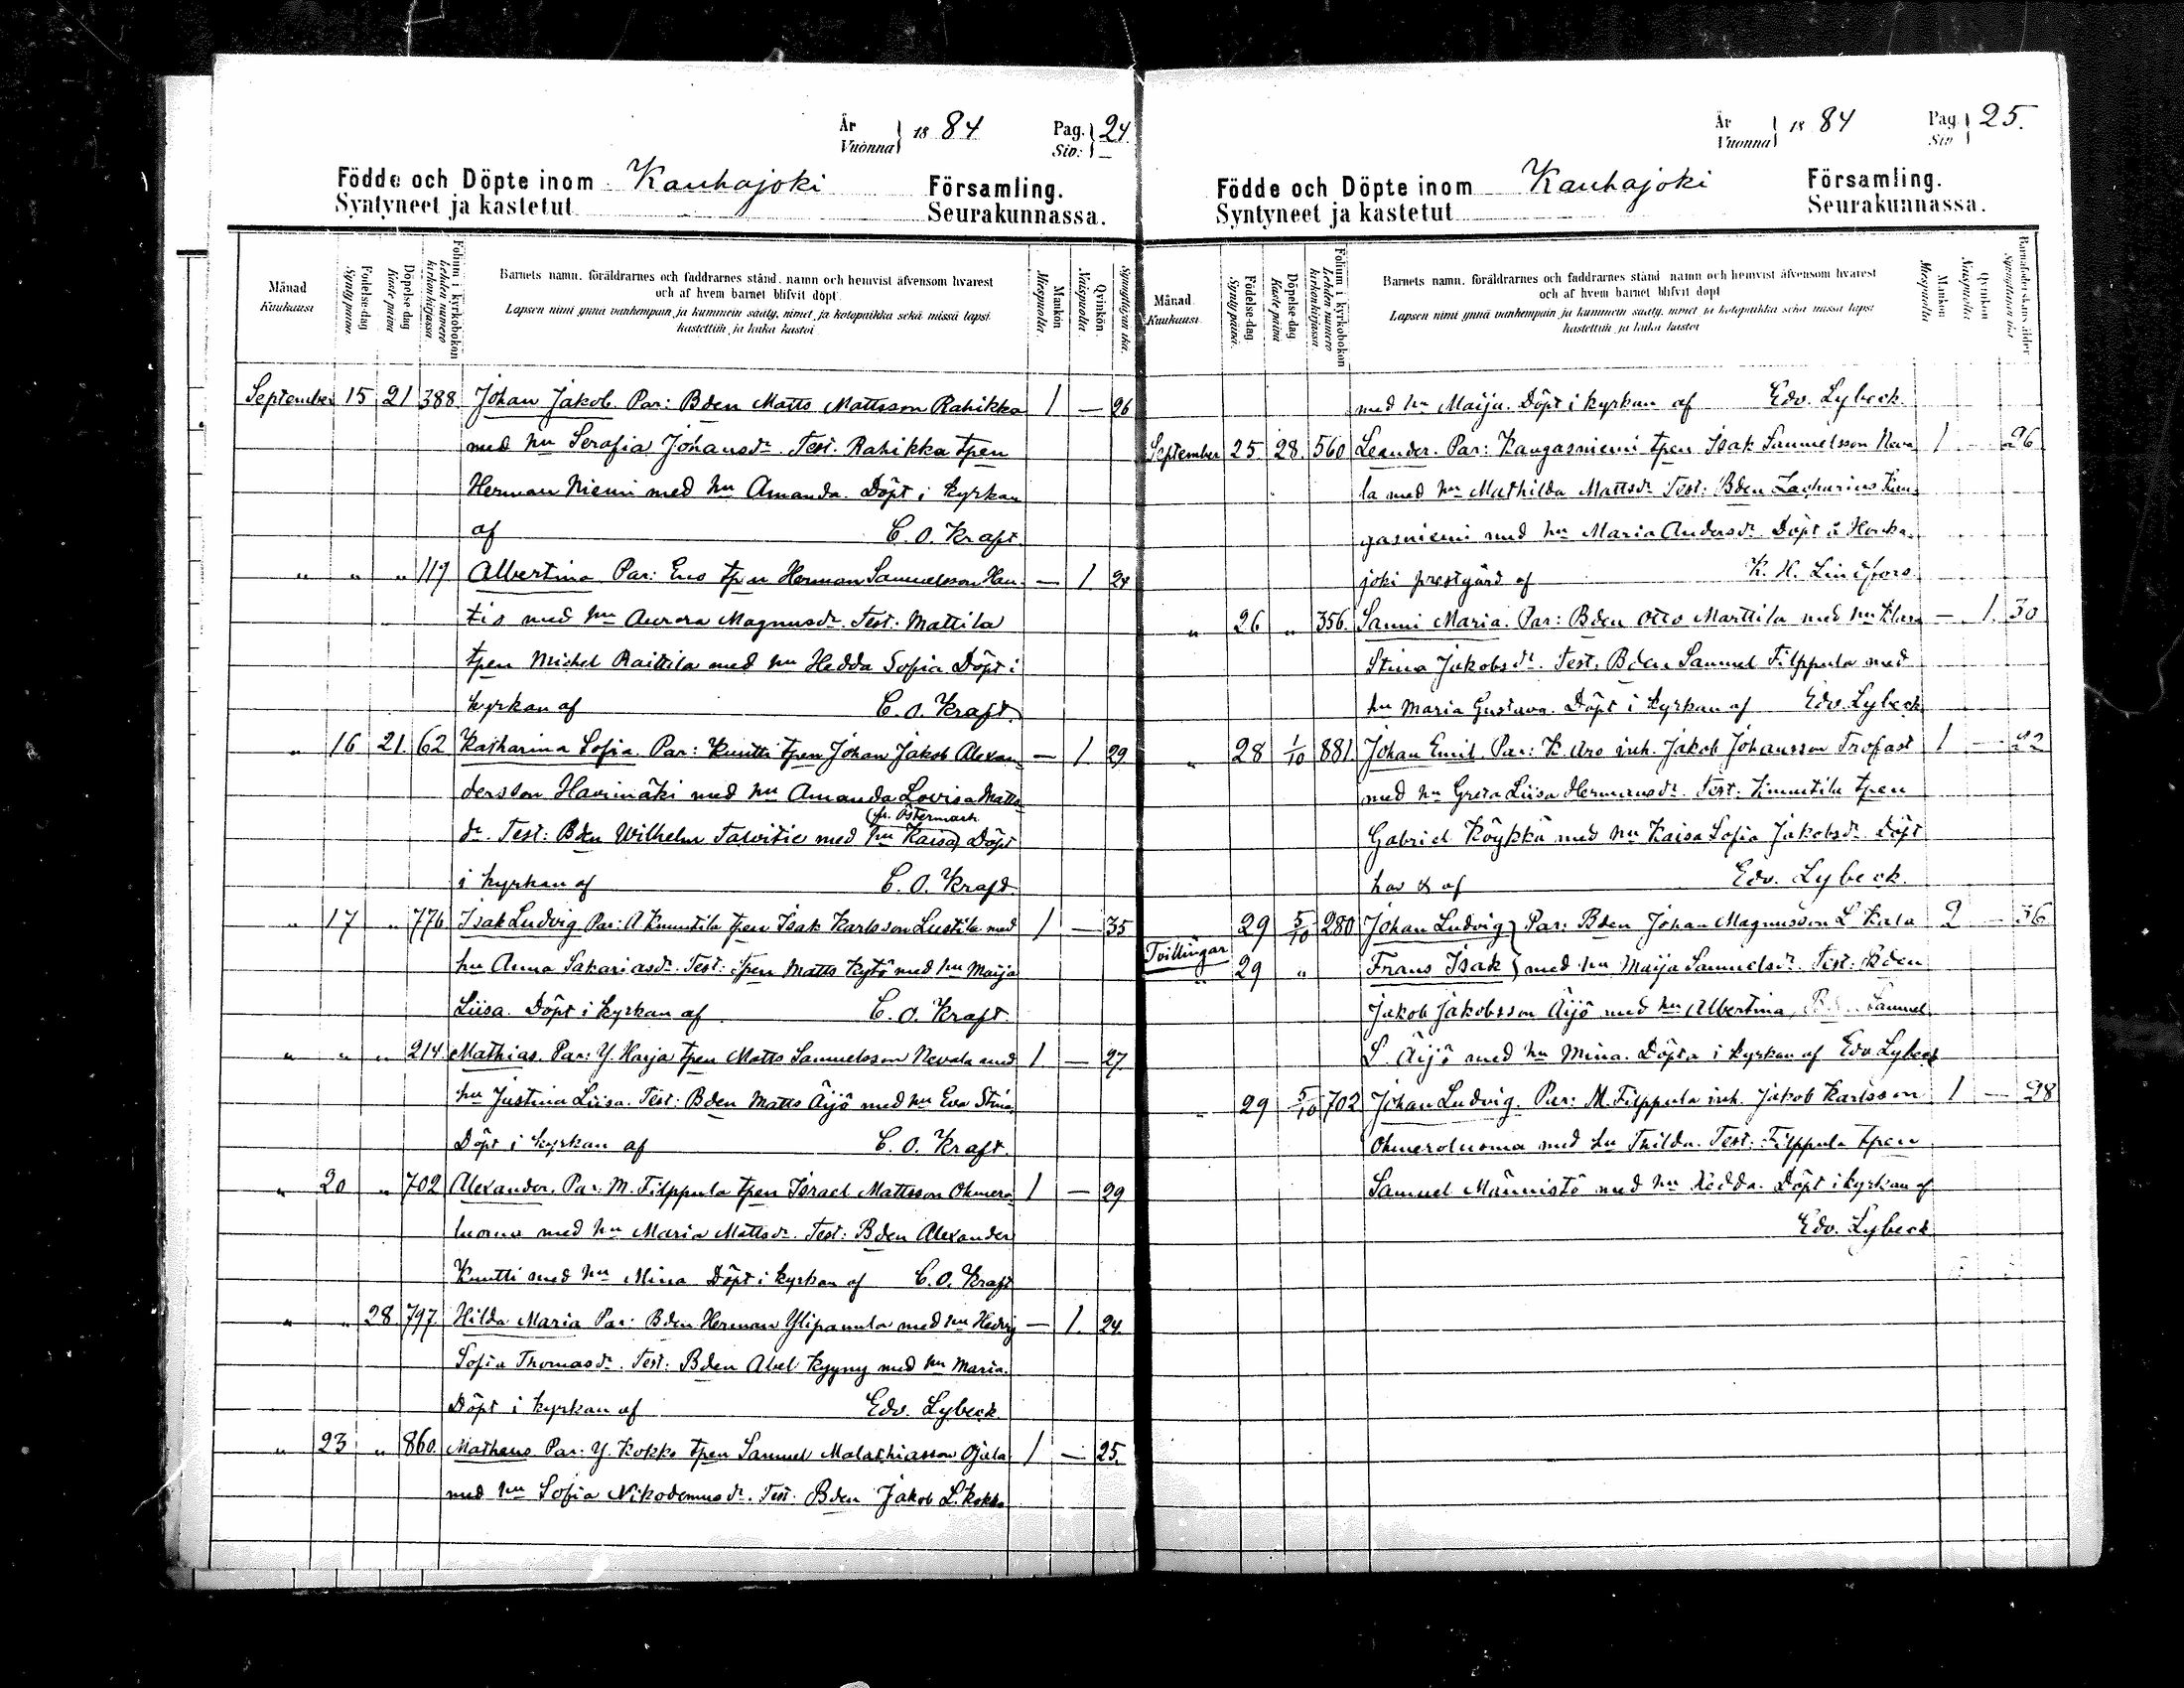 År
Vuonna 1884 Pag. 24.
Siv:
Födde och Döpte inom Kauhajoki Församling.
Syntyneet ja kastetut Seurakunnassa.
Månad
Kuukausi
Födelse-dag
Syntypäivä
Döpelse-dag
Kastepäivä
Folium i kyrkobokon
Lehden numero kirkonkirjassa
Barnets namn, föräldrarnes och faddrarnes stånd, namn och hemvist äfvensom hvarest
och af hvem barnet blifvit döpt.
Lapsen nimi ynnä vanhempain ja kummein sääty, nimet ja kotopaikka sekä missä lapsi
kastettiin ja kuka kastoi
Mankön
Miespuolia
Qvinkön.
Naispuolia
Synnyttäjän ikä.
September 15 21 388 Johan Jakob. Par: Bden Matts Mattsson Rahikka 1 — 26
med hu Serafia Johansdr. Test. Rahikka tpen
Herman Niemi med hu Amanda. Döpt i kyrkan
af C. O. Kraft.
" " " 119 Albertina Par: Eno tpen Herman Samuelsson Han- — 1 24
tis med hu Aurora Magnusdr. Test: Mattila
tpen Michel Raittila med hu Hedda Sofia Döpt i
kyrkan af C. O. Kraft.
" 16 21. 62 Katharina Sofia. Par: Knutti tpen Johan Jakob Alexan- — 1 29
dersson Havimäki med hu Amanda Lovisa Matts-
(fr. Östermark
dr. Test: Bden Wilhelm Talvitie med hu Kaisa) Döpt
i kyrkan af C. O. Kraft
" 17 " 776 Isak Ludvig Par: A Knuutila tpen Isak Karlsson Lustila med 1 — 35
hu Anna Sakariasdr. Test: tpen Matts Kytö med hu Maija
Liisa. Döpt i kyrkan af C. O. Kraft.
" " " 214 Mathias. Par: Y. Harja tpen Matts Samuelsson Nevala med 1 — 27.
hu Justina Liisa. Test: Bden Matts Äijö med hu Eva Stina
Döpt i kyrkan af C. O. Kraft.
" 20 " 702 Alexander. Par: M. Filppula tpen Israel Mattsson Ohmero- 1 — 29
luoma med hu Maria Mattsdr. Test: Bden Alexander
Knutti med hu Mina Döpt i kyrkan af C. O. Kraft
" " 28 797. Hilda Maria Par: Bden Herman Ylipanula med hu Hedvig — 1. 24.
Sofia Thomasdr. Test: Bden Abel Kyyny med hu Maria.
Döpt i kyrkan af Edv. Lybeck.
" 23 " 860. Matheus Par: Y. Kokko tpen Samuel Malachiasson Ojala 1 — 25.
med hu Sofia Nikodemusdr. Test: Bden Jakob L. Kokko
År
Vuonna 1884 Pag. 25.
Siv
Födde och Döpte inom Kauhajoki Församling.
Syntyneet ja kastetut Seurakunnassa.
Månad.
Kuukausi.
Födelse-dag
Syntypäivä.
Döpelse-dag
Kastepäivä
Folium i kyrkobokon
Lehden numero kirkonkirjassa
Barnets namn, föräldrarnes och faddrarnes stånd, namn och hemvist äfvensom hvarest
och af hvem barnet blifvit döpt
Lapsen nimi ynnä vanhempain ja kummein sääty, nimet ja kotopaikka sekä missä lapsi
kastettiin ja kuka kastoi
Mankön
Miespuolia
Qvinkön
Naispuolia
Barnaföderskans ålder
Synnyttäjän ikä
med hu Maija. Döpt i kyrkan af Edv. Lybeck.
September 25 28. 560 Leander. Par: Kangasniemi tpen Isak Samuelsson Neva- 1 — 26
la med hu Mathilda Mattsdr Test: Bden Zacharias Kan-
gasniemi med hu Maria Andersdr. Döpt å Honka-
joki prestgård af K. H. Lindfors.
" 26 " 356. Sanni Maria. Par: Bden Otto Marttila med hu Klara — 1. 30
Stina Jakobsdr. Test. Bden Samuel Filppula med
hu Maria Gustava. Döpt i kyrkan af Edv. Lybeck
" 28 1/10 881. Johan Emil. Par: K. Aro inh. Jakob Johansson Trofast 1 — 22
med hu Greta Liisa Hermansdr. Test: Knuutila tpen
Gabriel Köykkä med hu Kaisa Sofia Jakobsdr. Döpt
hos & af Edv. Lybeck.
29 5/10 280 Johan Ludvig} Par: Bden Johan Magnusson L. Karla 2 — 36
Tvillingar
" 29 " Frans Isak } med hu Maija Samuelsdr. Test: Bden
Jakob Jakobsson Äijö med hu Albertina, Bden Samuel
L. Äijö med hu Mina. Döpta i kyrkan af Edv. Lybeck
" 29 5/10 702 Johan Ludvig. Par: M. Filppula inh. Jakob Karlsson 1 — 28
Ohmeroluoma med hu Thilda. Test: Filppula tpen
Samuel Männistö med hu Hedda. Döpt i kyrkan af
Edv. Lybeck